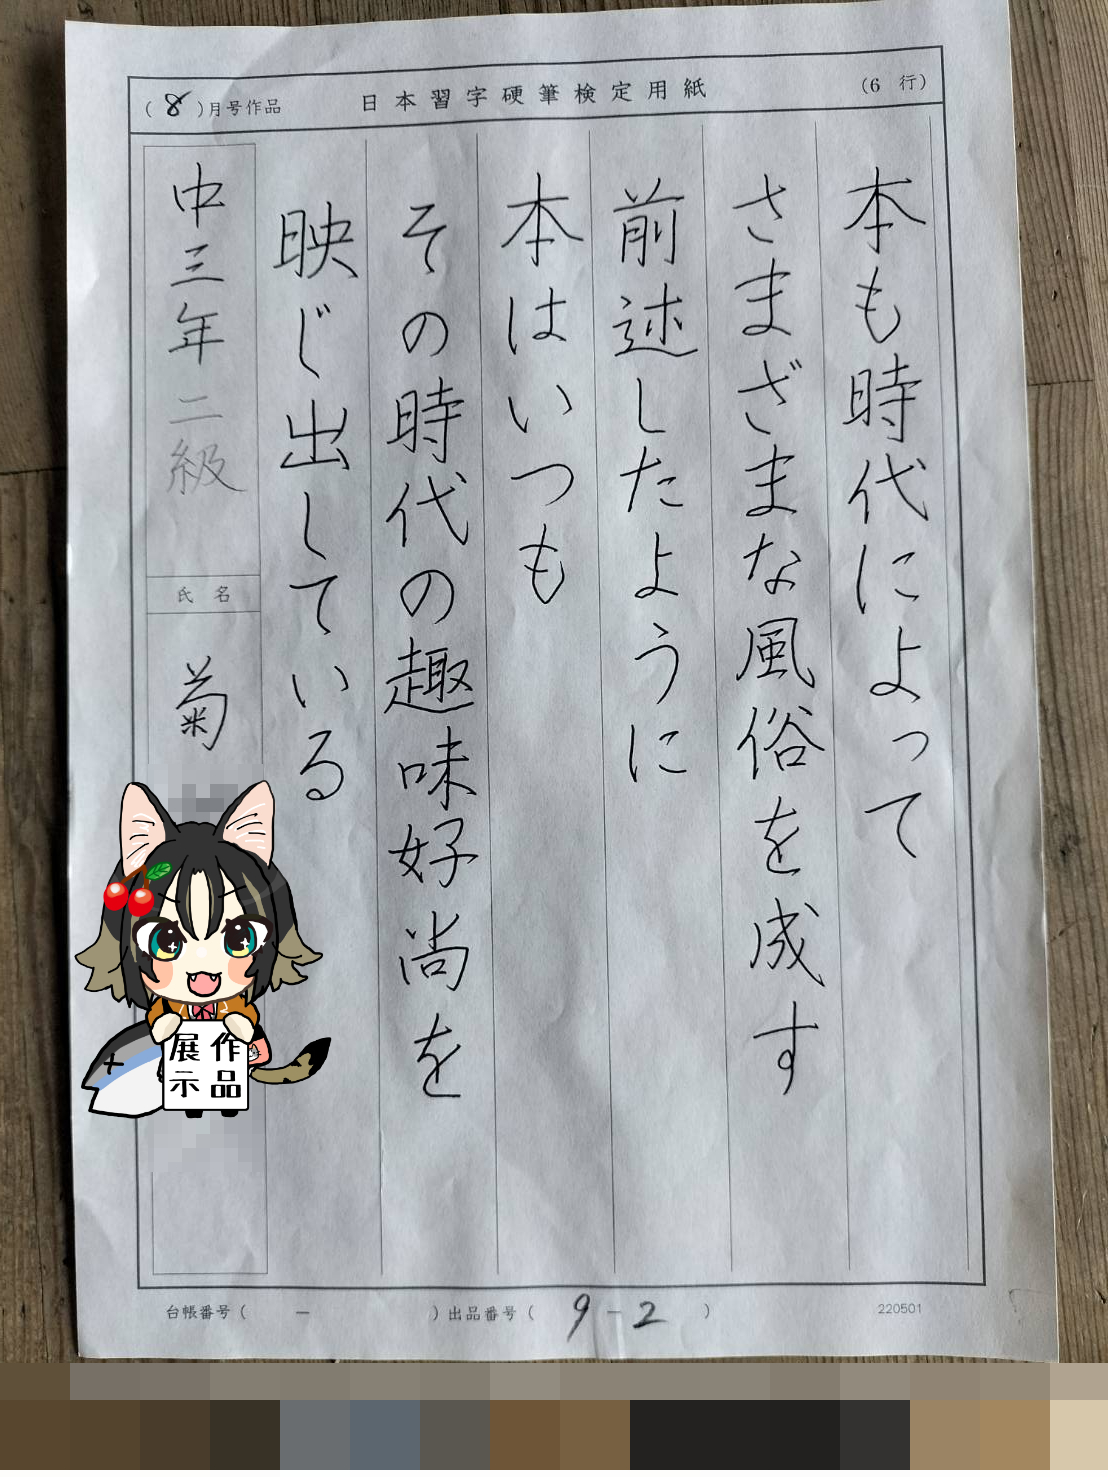 (8)月号作品
日本習字硬筆検定用紙
(6 行)
本も時代によって
さまざまな風俗を成す
前述したように
本はいつも
その時代の趣味好尚を
映じ出している
中三年 二級
氏 名
菊
作品
展示
台帳番号( ー )出品番号( 9-2 )
220501